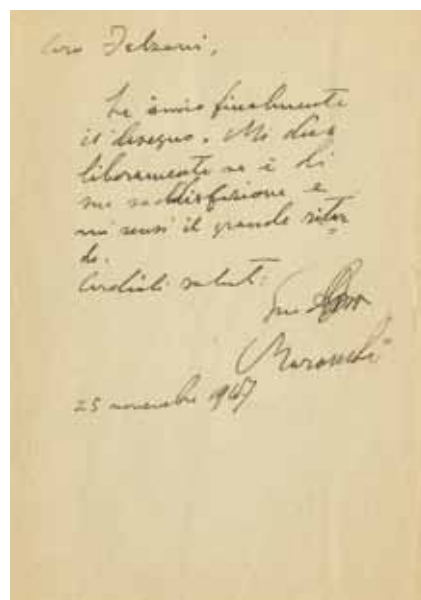 Caro Felzani,
Le invio finalmente
il disegno. Mi dica
liberamente se è di
sua soddisfazione e
mi scusi il grande ritar
do.
Cordiali saluti.
Suo
25 novembre 1947